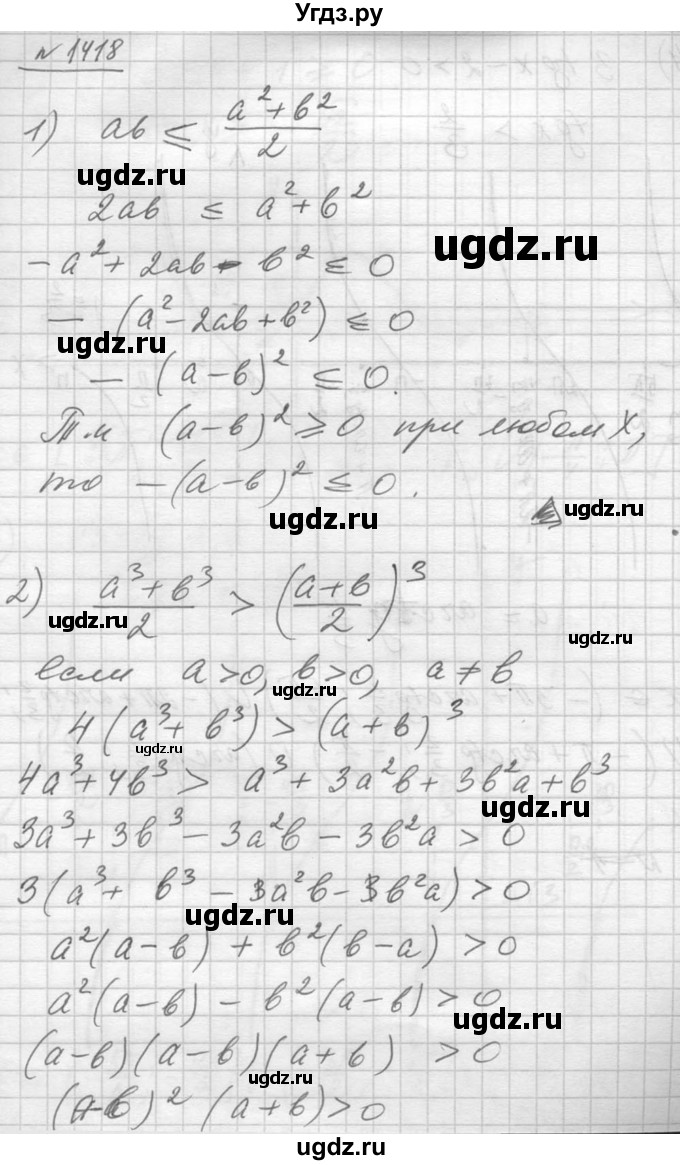 Угдз.ру
№ 1418
1) ab ≤ (a² + b²)/2
ugdz.ru
2ab ≤ a² + b²
ugdz.ru
-a² + 2ab - b² ≤ 0
- (a² - 2ab + b²) ≤ 0
ugdz.ru
- (a - b)² ≤ 0.
Т.к (a - b)² ≥ 0 при любом х,
то - (a - b)² ≤ 0.
ugdz.ru
ugdz.ru
2) (a³ + b³)/2 > ((a + b)/2)³
ugdz.ru
ugdz.ru
если a > 0, b > 0, a ≠ b.
ugdz.ru
4(a³ + b³) > (a + b)³
ugdz.ru
4a³ + 4b³ > a³ + 3a²b + 3b²a + b³
ugdz.ru
3a³ + 3b³ - 3a²b - 3b²a > 0
3(a³ + b³ - a²b - b²a) > 0
ugdz.ru
a²(a - b) + b²(b - a) > 0
a²(a - b) - b²(a - b) > 0
ugdz.ru
(a - b)(a - b)(a + b) > 0
ugdz.ru
(a - b)² (a + b) > 0
ugdz.ru